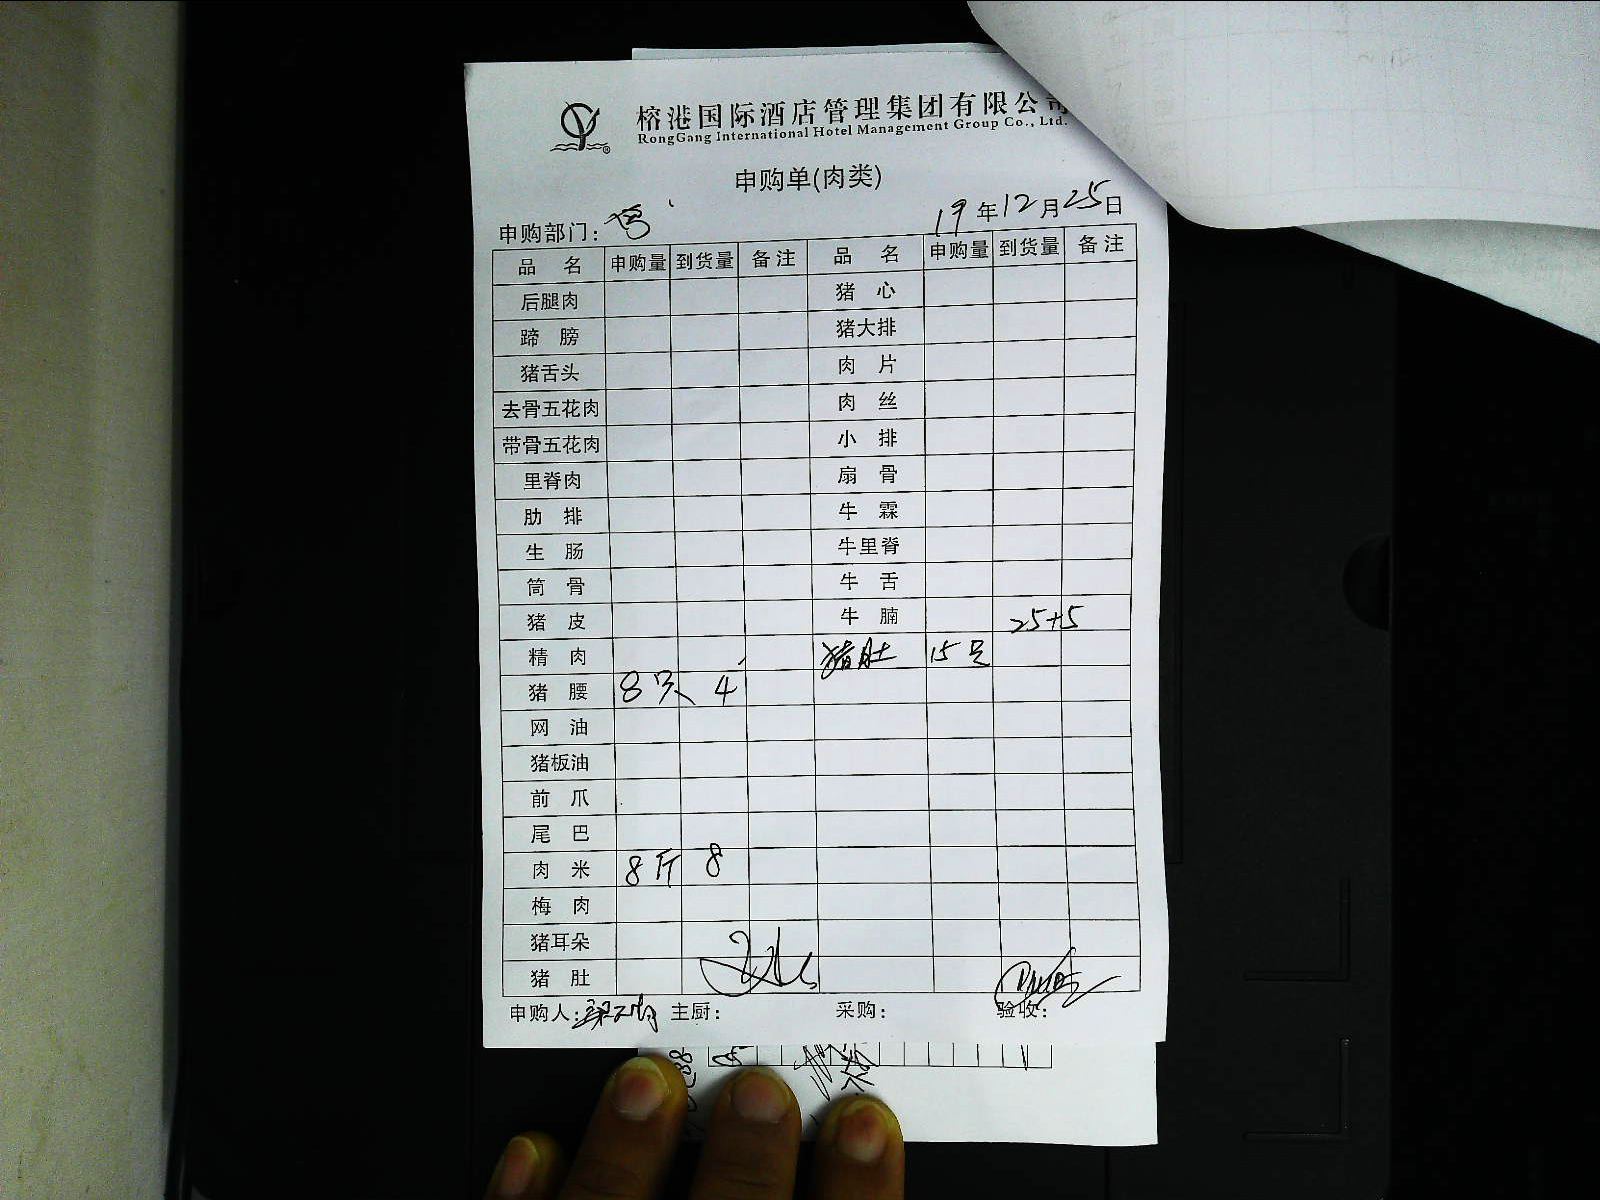 榕港国际酒店管理集团有限公司
RongGang International Hotel Management Group Co., Ltd.
申购单(肉类)
19年12月25日
申购部门：
品 名 申购量 到货量 备注 品 名 申购量 到货量 备注
后腿肉 猪 心
蹄 膀 猪大排
猪舌头 肉 片
去骨五花肉 肉 丝
带骨五花肉 小 排
里脊肉 扇 骨
肋 排 牛 霖
生 肠 牛里脊
筒 骨 牛 舌
猪 皮 牛 腩 25+5
精 肉 猪肚 15只
猪 腰 8只 4
网 油
猪板油
前 爪
尾 巴
肉 米 8斤 8
梅 肉
猪耳朵
猪 肚
申购人： 主厨： 采购： 验收：